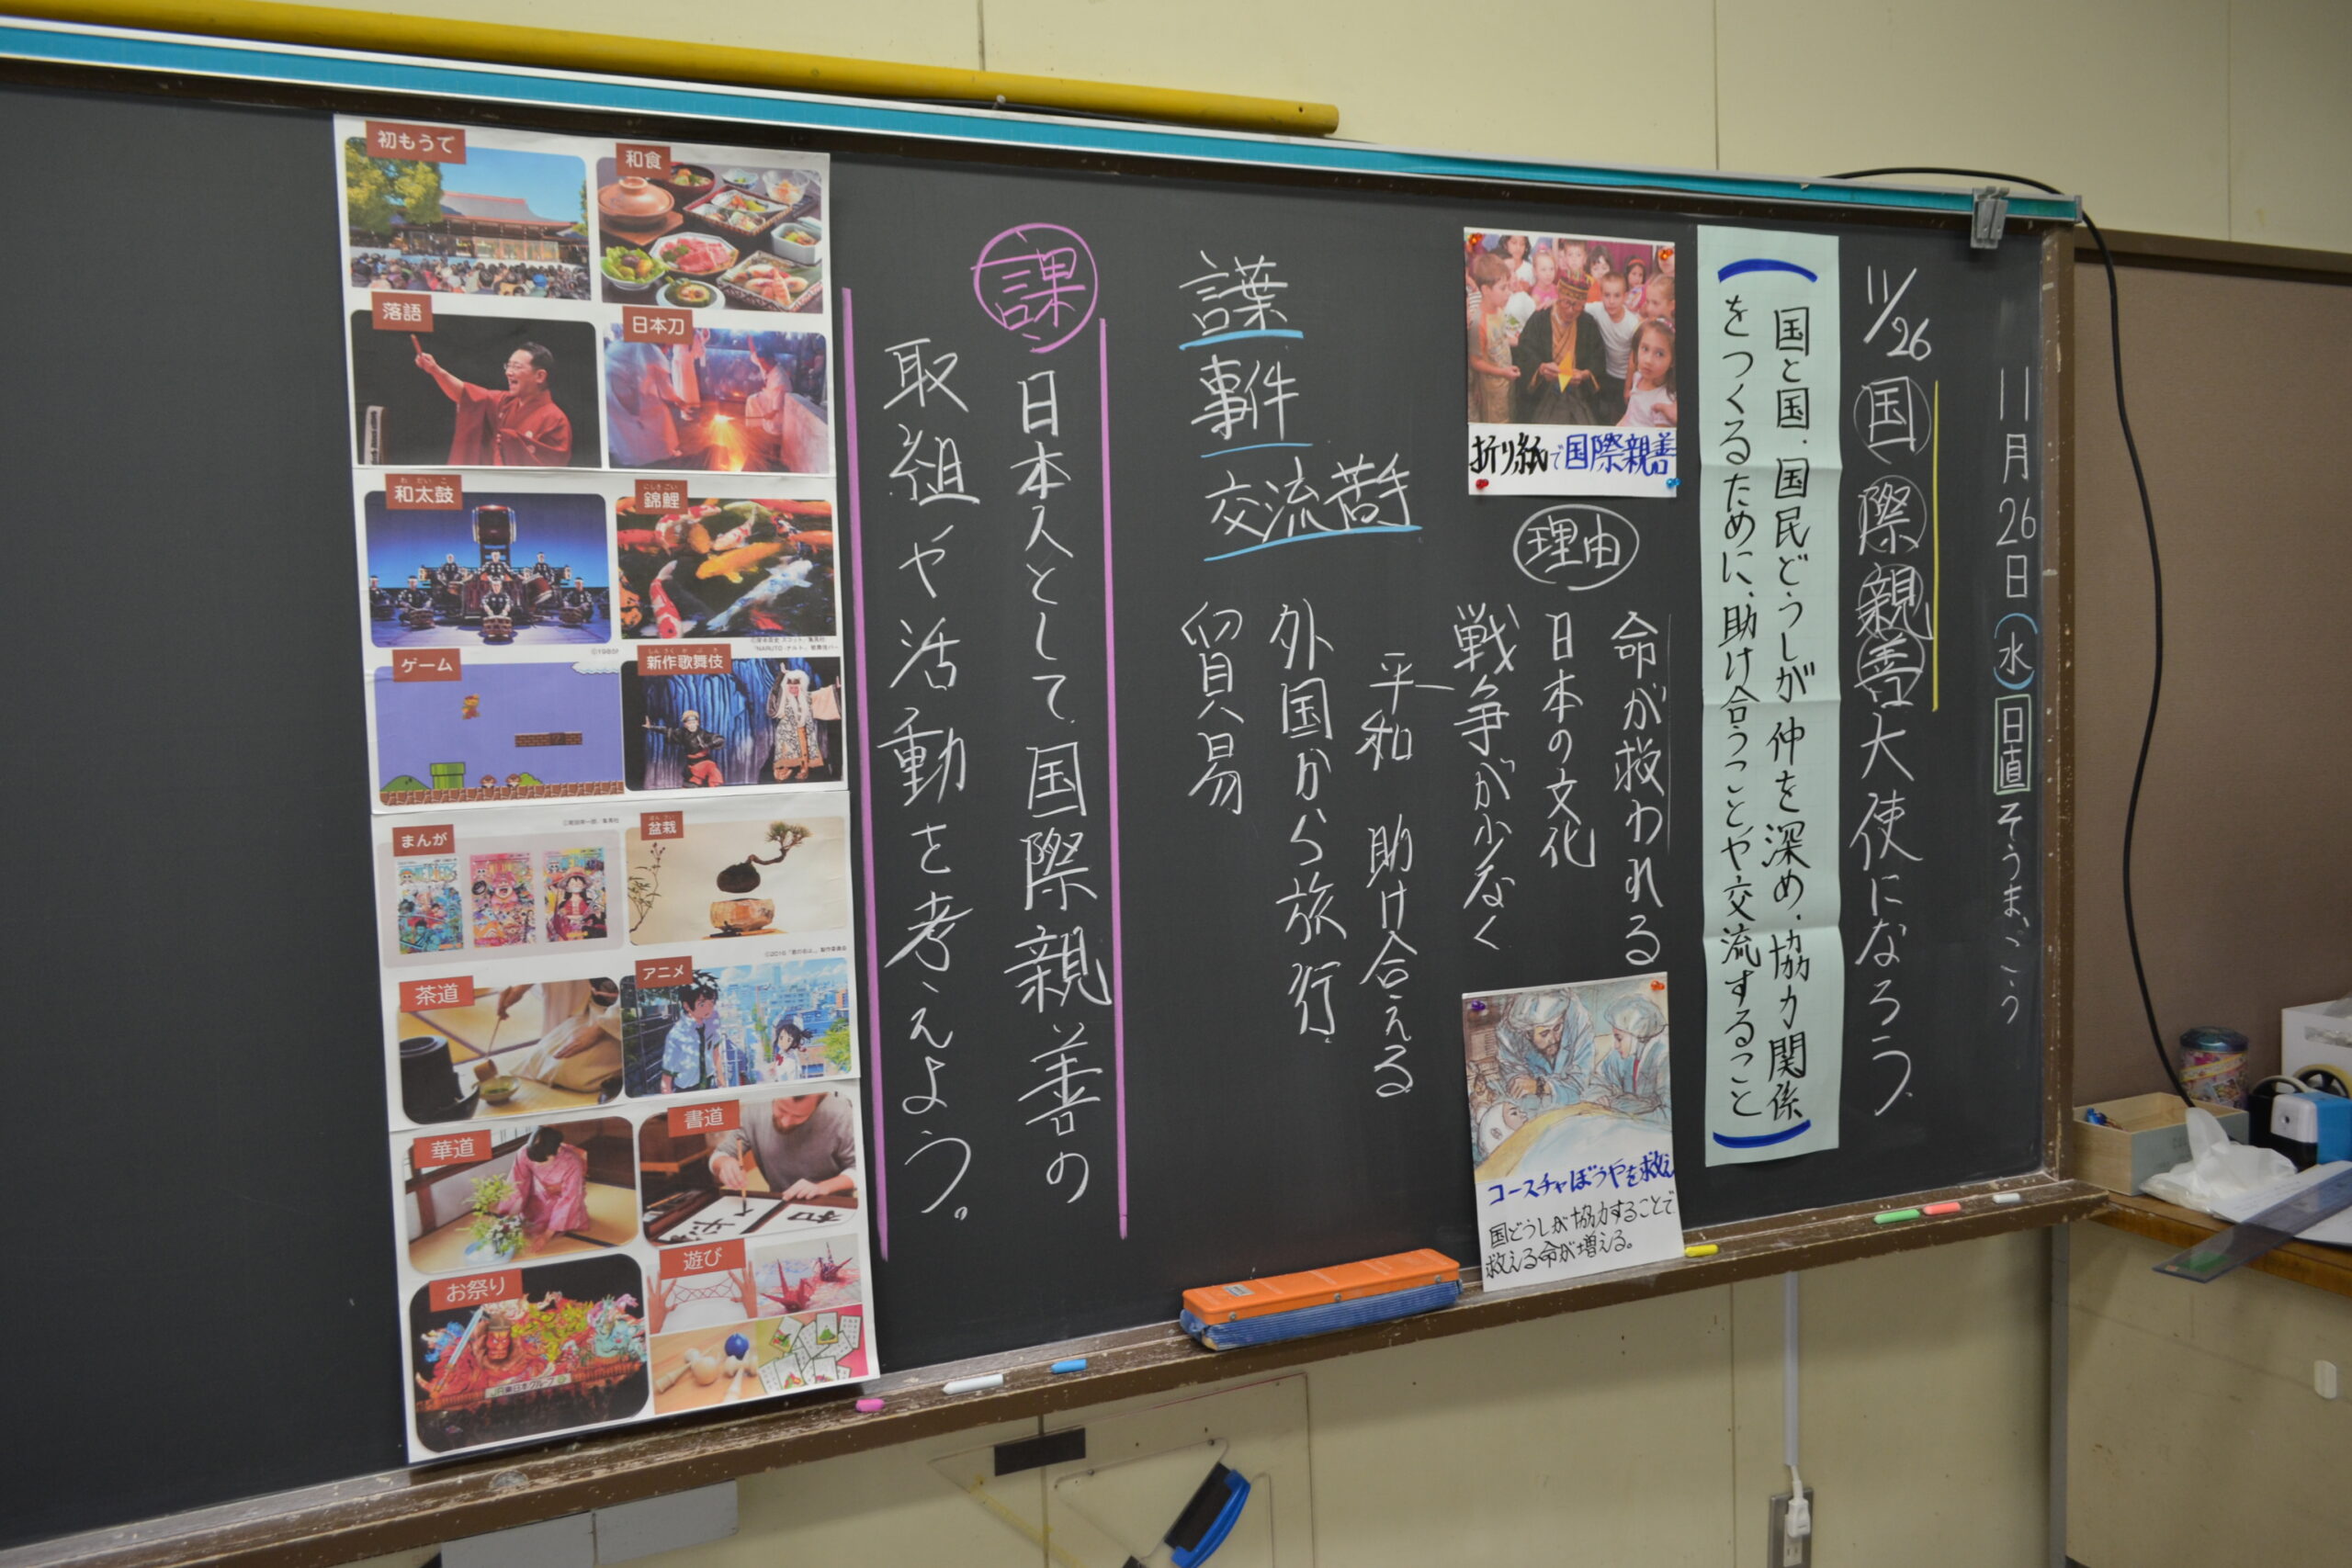 11月26日(水)日直そうま、こう
11/26国際親善大使になろう。
国と国、国民どうしが仲を深め、協力関係
をつくるために、助け合うことや交流すること
折り紙で国際親善
理由
命が救われる
日本の文化
戦争が少なく
平和 助け合える
外国から旅行
貿易
コースチャぼうやを救え
国どうしが協力することで
救える命が増える。
事件
交流
課 日本人として国際親善の
取組や活動を考えよう。
初もうで
和食
落語
日本刀
わだいこ
和太鼓
にしきごい
錦鯉
ゲーム
しんさくかぶき
新作歌舞伎
まんが
ぼんさい
盆栽
茶道
アニメ
華道
書道
お祭り
遊び
平和